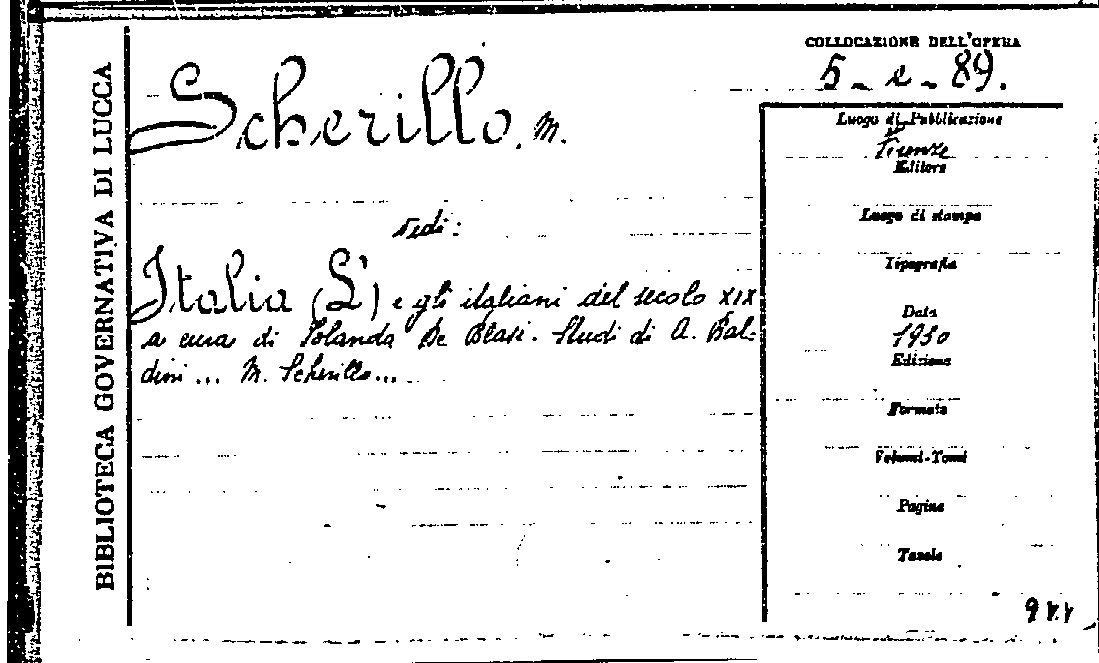 BIBLIOTECA GOVERNATIVA DI LUCCA
COLLOCAZIONE DELL'OPERA
5-e-89.
Scherillo, M.
Vedi:
Italia (L') e gli italiani del secolo XIX
a cura di Iolanda De Blasi. Studi di A. Bal-
dini ... M. Scherillo...
Luogo di Pubblicazione
Firenze
Editore
Luogo di stampa
Tipografia
Data
1930
Edizione
Formato
Volumi-Tomi
Pagine
Tavole